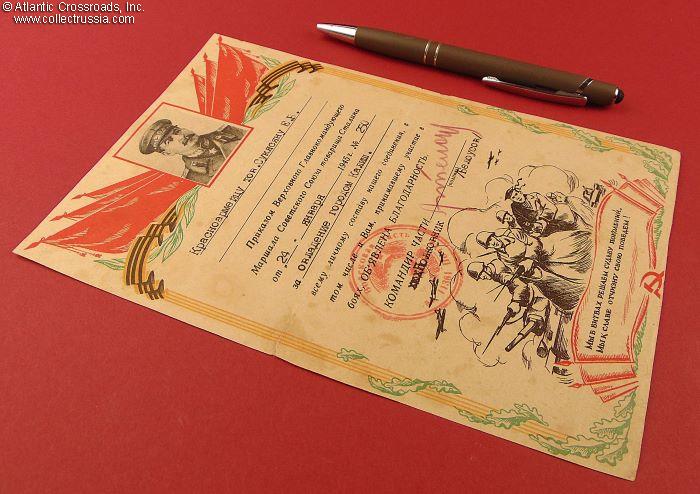 © Atlantic Crossroads, Inc.
www.collectrussia.com
Красноармейцу тов.
Приказом Верховного Главнокомандующего
Маршала Советского Союза товарища Сталина
от "24" января 1945 г. № 250
за овладение городом
всему личному составу нашего соединения, в
том числе и Вам, принимавшему участие в
боях ОБ'ЯВЛЕНА БЛАГОДАРНОСТЬ
КОМАНДИР ЧАСТИ
Мы в битвах решаем судьбу поколений,
Мы к славе отчизну свою поведем!